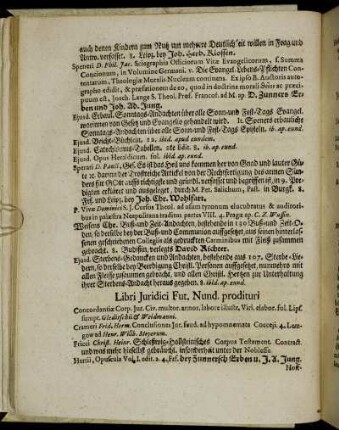 auch denen Kindern zum Nutz um mehrere Deutlichkeit willen in Frag und
Antw. verfasset. 2. Leipz. bey Joh. Herb. Klossen.
Speneri D. Phil. Jac. Sciographia Officiorum Vitæ Evangelicorum, f. Summa
Concionum, in Volumine Germani. v. Die Evangel. Lebens-Pflichten Con-
tentarum, Theologiæ Moralis Nucleum continens. Ex ipso B. Auctoris auto-
grapho edidit, & præfationem de eo, quod in doctrina morali
pium est, Joach. Lange S. Theol. Prof. Francof. ad M. ap. D. Zunners Er-
ben und Joh. Ad. Jung.
Ejusd. Erbaul. Sonntags-Andachten über alle Sonn- und Fest-Tags Evangel.
worinnen von Gesetz und Evangelio gehandelt wird. 2. Speneri erbauliche
Sonntags-Andachten über alle Sonn- und Fest-Tags Episteln. ib. ap. eund.
Ejusd. Beicht-Büchlein. 12. ibid. apud eundem.
Ejusd. Catechismus-Tabellen. 8. ib. ap. eund.
Ejusd. Opus Heraldicum. fol. ibid. ap. eund.
Sperani D. Pauli, Es ist das Heil uns kommen her von Gnad und lauter Gü-
te 2c. darinn der Trostreiche Artickel von der Rechtfertigung des armen Sün-
ders für Gott auffs richtigste und gründl. verfasset und begriffen ist, in 9. Pre-
digten erkläret und ausgelegt, durch M. Pet. Past. in Burgk. 8.
Frf. und Leipz. bey Joh. Chr. Wohlfart.
P. Viva Dominici S. J. Cursus Theol. ad usum tyronum elucubratus & auditori-
bus in palæstra Neapolitana traditus partes VIII. 4. Pragæ ap. C. F.
Wessens Chr. Buß- und Zeit-Andachten, bestehende in 150 Buß- und Zeit-O-
den, so derselbe bey der Buß- und Communion auffgesetzet, aus seinen hinterlas-
senen geschriebenen Collegiis als gedruckten Carminibus mit Fleiß zusammen
gebracht. 8. Budissin, verlegts David Richter.
Ejusd. Sterbens-Gedancken und Andachten, bestehende aus 107. Sterbe-Lie-
dern, so derselbe bey Beerdigung Christl. Personen auffgesetzet, nunmehro mit
allen Fleisse zusammen gebracht, und allen Christl. Hertzen zur Unterhaltung
ihrer Sterbens-Andacht heraus gegeben. 8. ibid. ap. eund.
Libri Juridici Fut. Nund. prodituri
Concordantiæ Corp. Jur. Civ. multor. annor. labore illustr. Viri. elabor. fol. Lips.
sumpt. Gleditschii & Weidmanni.
Crameri Frid. Herm. Concitutiones Jur. feud. ad hypomnemata Cocceji. 4. Lun-
gow ad Henr. Wilh. Meyerum.
Fricci Christ. Heinr. Schleßwig-Hollsteinisches Corpus Testament. Contract.
und was mehr dieselbst gebräuchl. insonderheit unter der Noblesse.
Hertii, Opuscula Vol. I. edit. 2. 4. Frf. bey Zunnerisch Erben u. J. A. Jung.
Hof-